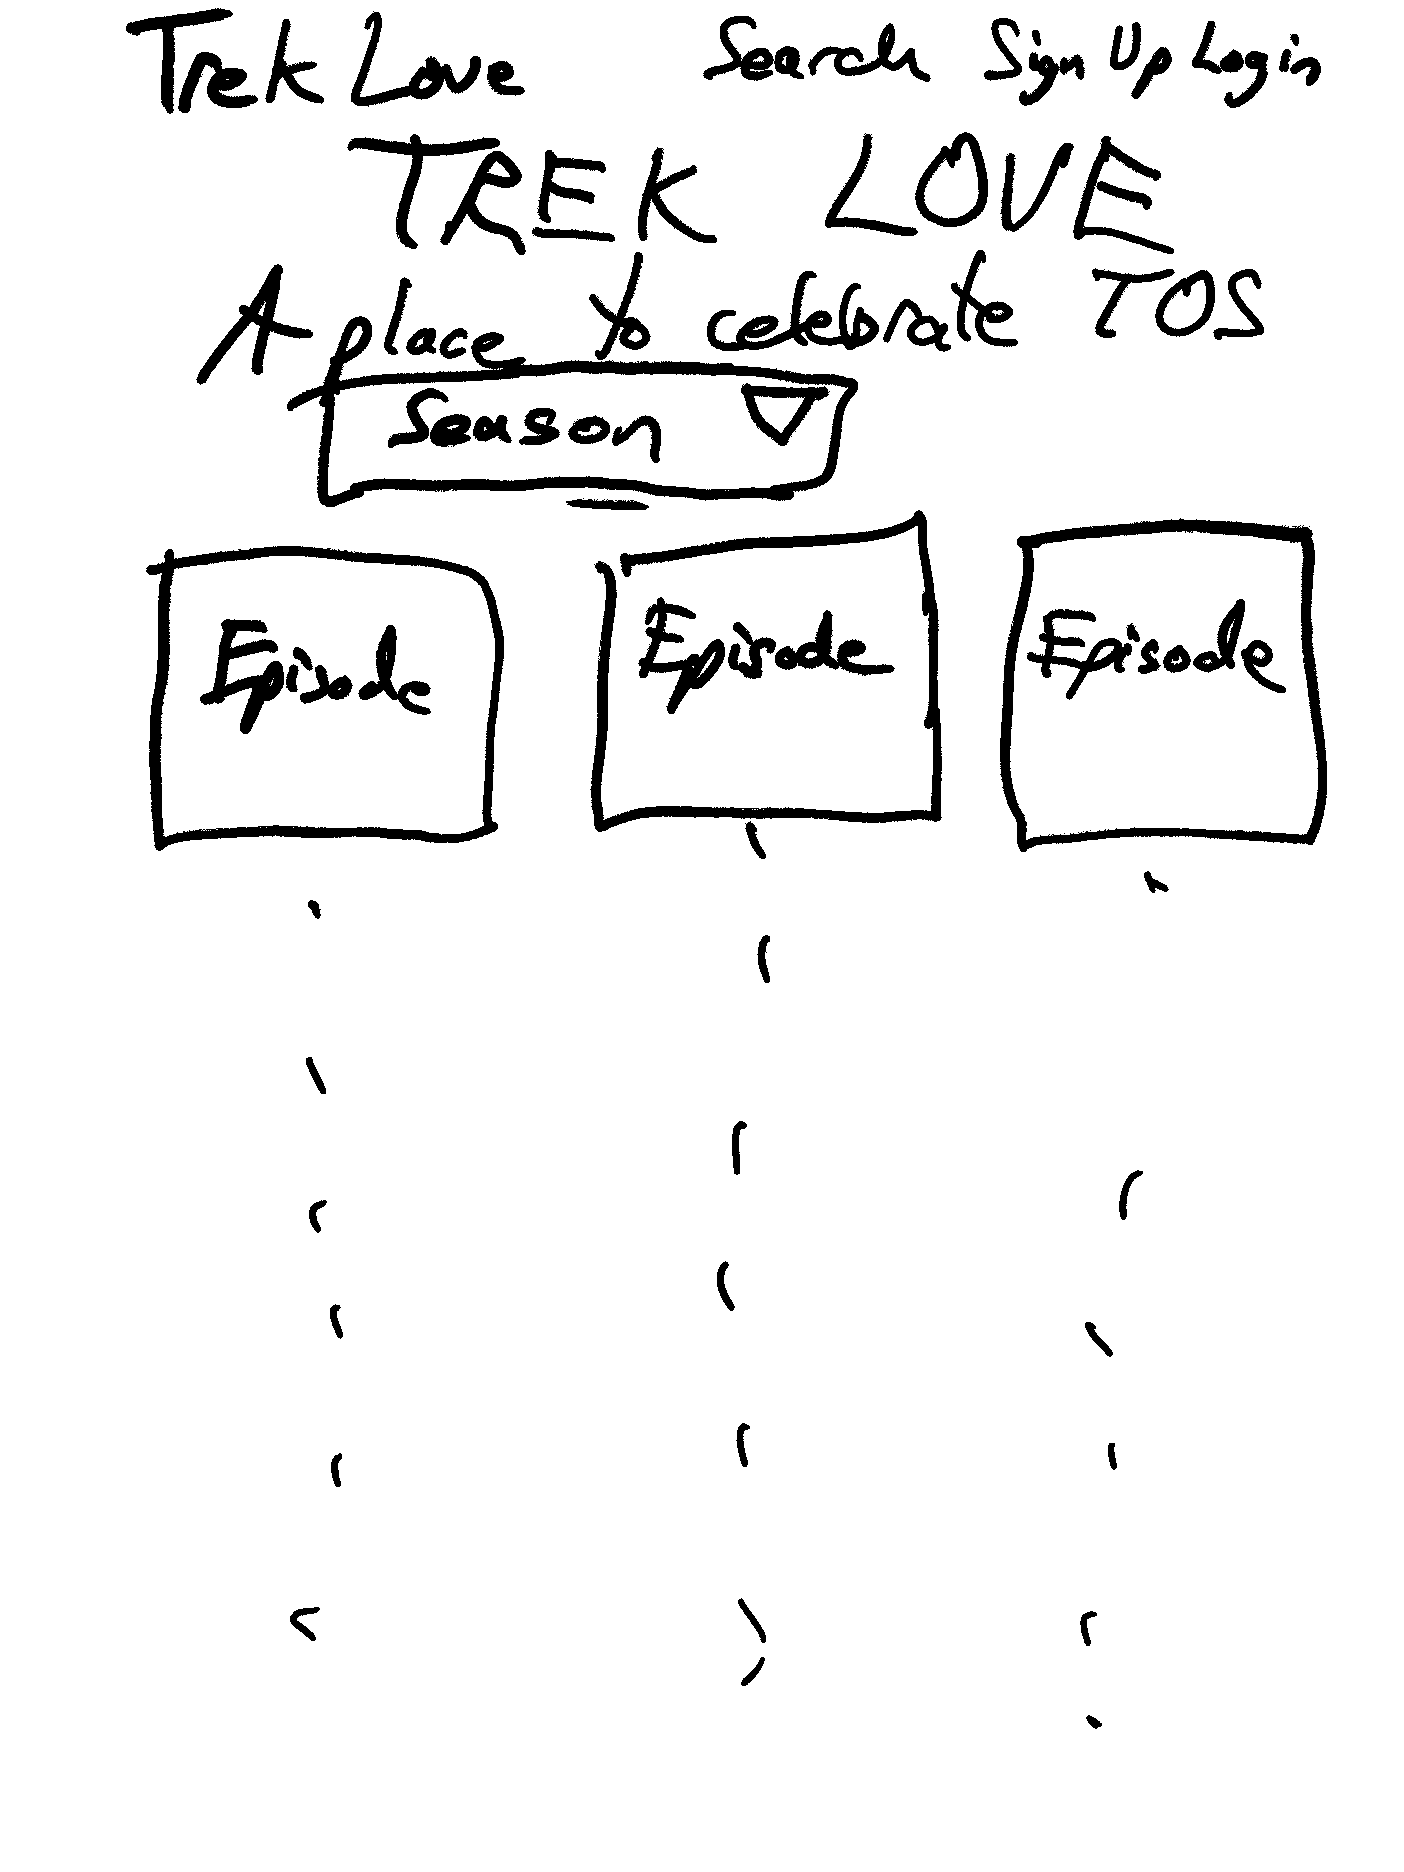 Trek Love Search Sign Up Login
TREK LOVE
A place to celebrate TOS
Season
Episode Episode Episode